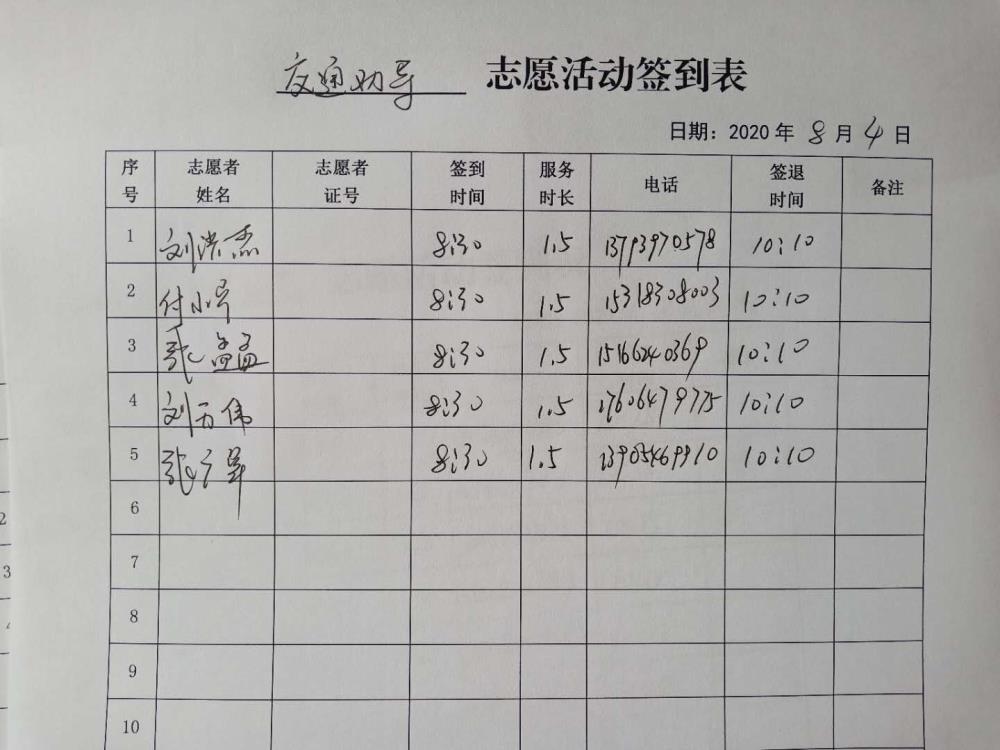 交通劝导 志愿活动签到表
日期：2020 年 8 月 4 日
序号 志愿者姓名 志愿者证号 签到时间 服务时长 电话 签退时间 备注
1 刘洪杰 8:30 1.5 13793970578 10:10
2 付小军 8:30 1.5 15318308003 10:10
3 张孟孟 8:30 1.5 15166240369 10:10
4 刘万伟 8:30 1.5 17606479775 10:10
5 8:30 1.5 13905469910 10:10
6
7
8
9
10
2
3